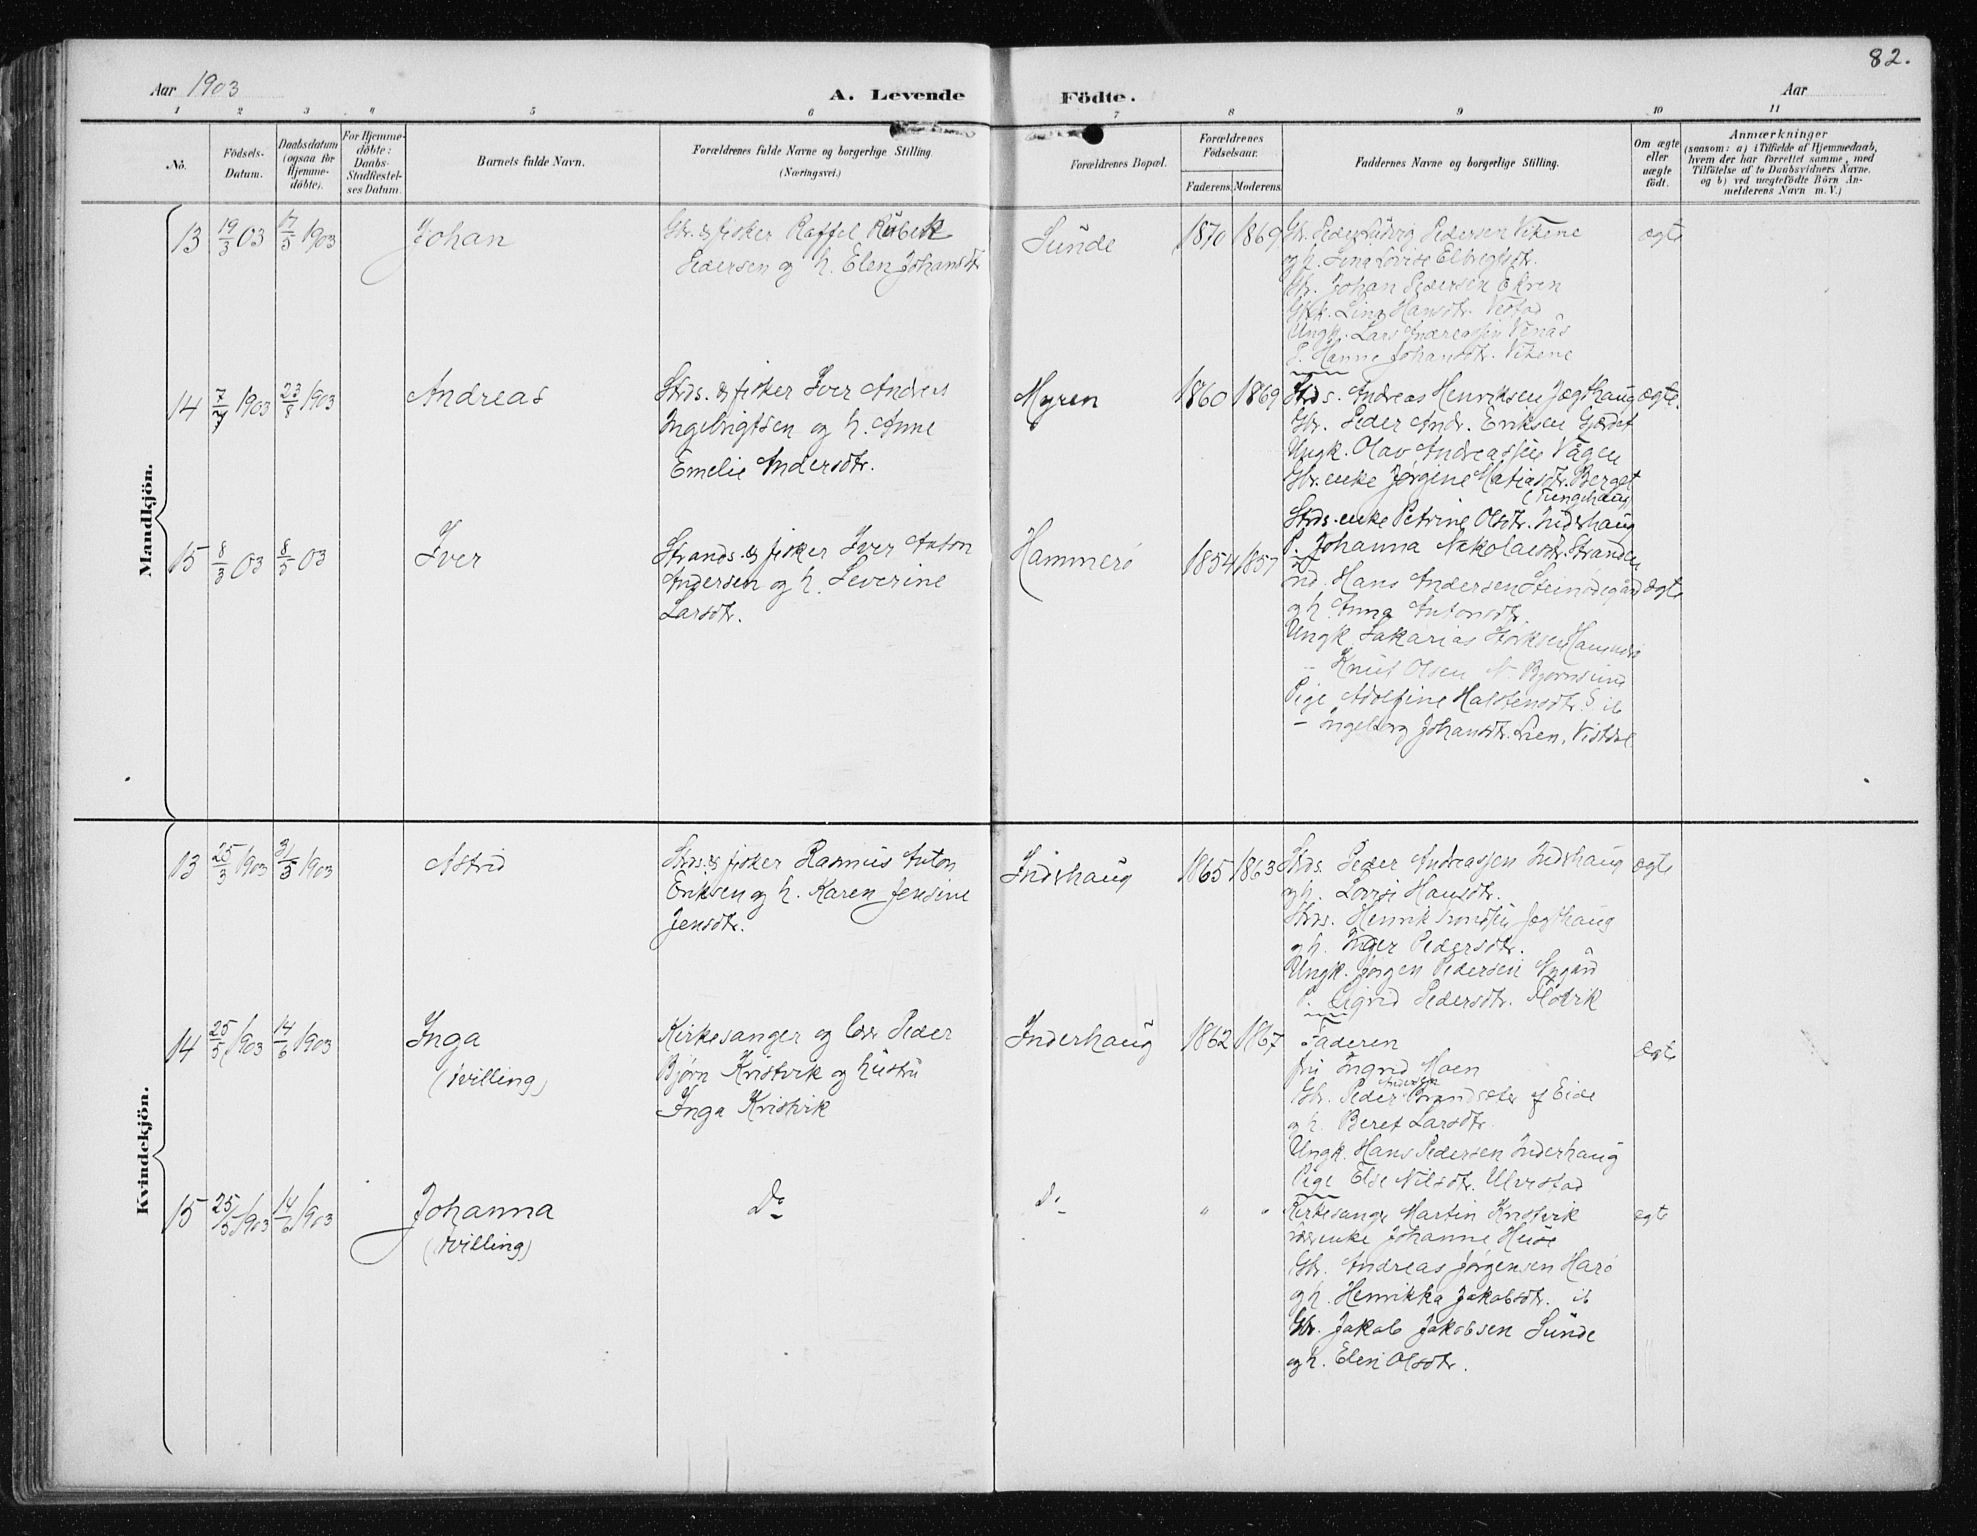 82.
Aar 1903
A. Levende Födte.
Aar
1 2 3 " 5 6 7 8 9 10 11
No.
Födsels-Datum.
Daabsdatum (ogsaa for Hjemme-döbte).
For Hjemme-döbte: Daabs-Stadfæstel-ses Datum.
Barnets fulde Navn.
Forældrenes fulde Navne og borgerlige Stilling. (Næringsvei.)
Forældrenes Bopæl.
Forældrenes Födselsaar.
Faderens. Moderens.
Faddernes Navne og borgerlige Stilling.
Om ægte eller uægte födt.
Anmærkninger
(saasom: a) i Tilfælde af Hjemmedaab,
hvem der har forrettet samme, med
Tilföielse af to Daabsvidners Navne.
og b) ved uægtefödte Börn An-
melderens Navn m. V.)
Mandkjön.
13 19/3 03 17/5 1903 Johan
Gbr. & fisker Raffel Røbekk
Pedersen og h. Elen Johansdt
Sunde 1870 1869
Gbr. Peder Ludvig Pedersen Vikene
og h. Lina Lovise Elbrigtsdt.
Gbr. Johan Pedersen Ekren
Lina Hansdtr. Vestad
Ungk. Lars Andreassen Venås
P. Hanne Johansdtr. Vikene
ægte
14 7/7 1903 23/8 1903 Andreas
Strds. & fisker Iver Andreas
Ingebrigtsen og h. Anne
Emelie Andersdtr.
Myren 1860 1869
Strds. Andreas Henriksen Jægthaug
Gbr. Peder Andr. Eriksen Gjerdet
Ungk. Olav Andreassen Vågen
Gbr. enke Jørgine Matiasdtr. Berget
Strds. enke Petrine Olsdtr. Inderhaug
P. Johanna Nikolaisdtr. Stranden
ægte.
15 8/3 03 8/5 03 Iver
Strands. & fisker Iver Anton
Andersen og h. Severine
Larsdtr.
Hammerø 1854 1857
Ind. Hans Andersen Steinødegård
og h. Anna Antonsdtr.
Ungk. Sakarias Hammerø
— Knut Olsen N. Bjørnsund
Pige Adolfine Halstensdtr. ib
— Ingeborg Johansdtr. Lien, Vistdal
ægte
Kvindekjön.
13 25/3 1903 31/5 1903 Astrid
Strds. & fisker Rasmus Anton
Eriksen og h. Karen Jensine
Jensdtr.
Inderhaug 1865 1863
Strds. Peder Andreassen Inderhaug
og h. Lovise Hansdtr.
Strds. Henrik Jægthaug
og h. Inger Pedersdtr.
Ungk. Jørgen Pedersen Nygård
P. Sigrid Pedersdtr. Flovik
ægte
14 25/5 1903 14/6 1903 Inga
(tvilling)
Kirkesanger og lær. Peder
Bjørn Kristvik og hustru
Inga Kristvik
Inderhaug 1862 1867
Faderen
fru Ingrid Moen
Andersen
Gbr. Peder Brandsæter af Eide
og h. Beret Larsdtr.
Ungk. Hans Pedersen Inderhaug
Pige Else Nilsdtr. Ulvestad
ægte
15 25/5 1903 14/6 1903 Johanna
(tvilling)
Do
Do
" "
Kirkesanger Martin Kristvik
lærerenke Johanne Huse
Gbr. Andreas Jørgensen Harø
og h. Henrikka Jakobsdtr. ib
Gbr. Jakob Jakobsen Sunde
og h. Elen Olsdtr.
ægte